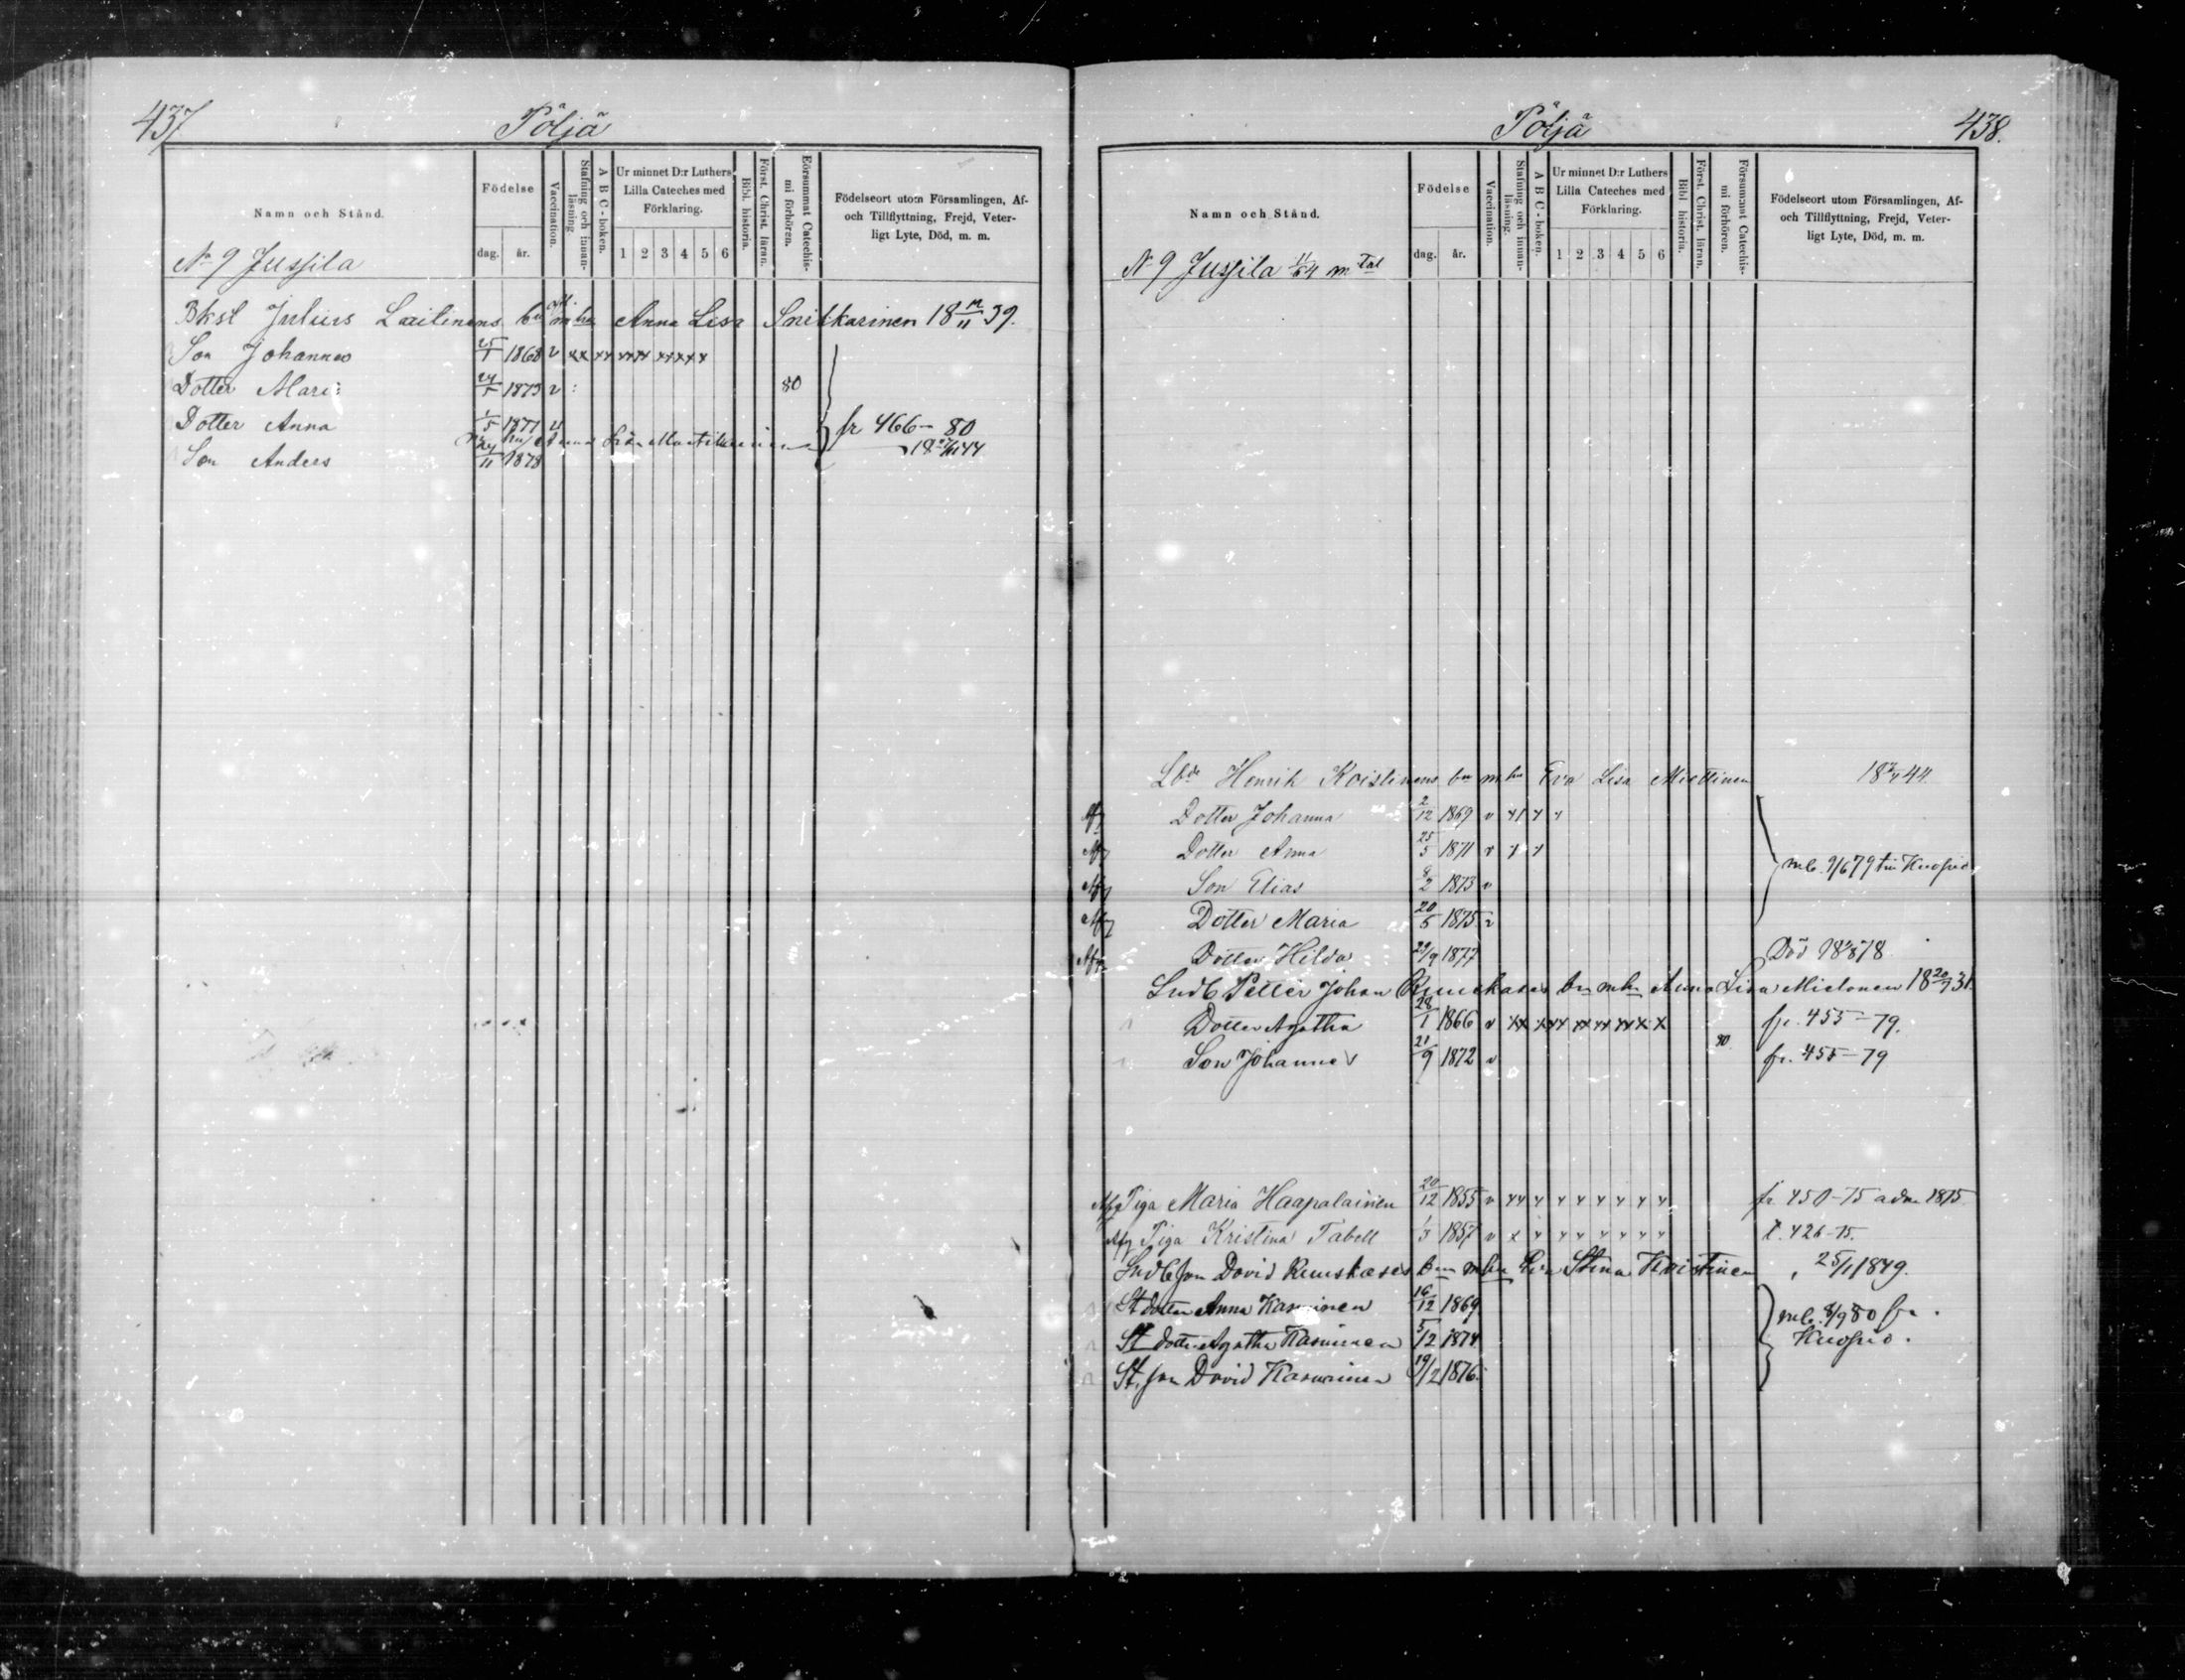 437
Pöljä
Namn och Stånd.
Födelse
dag. år.
Vaccination.
Stafning och innan-läsning.
A B C-boken.
Ur minnet D:r Luthers Lilla Cateches med Förklaring.
1 2 3 4 5 6
Bibl. historia.
Först. Christ. läran.
Försummat Catechis-mi förhören.
Födelseort utom Församlingen, Af- och Tillflyttning, Frejd, Veter-ligt Lyte, Död, m. m.
No 9 Jussila
Bksl Julius Laitinens bn m hu Anna Lisa Snitkarinen 18 11 39.
Son Johannes 25/1 1868 v
Dotter Mari: 1873 v 80
Dotter Anna 1/5 1877 fr 466-80
Son Anders 24/11 1878
Pöljä
438.
Namn och Stånd.
Födelse
dag. år.
Vaccination.
Stafning och innan-läsning.
A B C-boken.
Ur minnet D:r Luthers Lilla Cateches med Förklaring.
1 2 3 4 5 6
Bibl historia.
Först. Christ. läran.
Försummat Catechis-mi förhören.
Födelseort utom Församlingen, Af- och Tillflyttning, Frejd, Veter-ligt Lyte, Död, m. m.
No 9 Jussila 11/64 mtal
Henrik Koistinens bn m hu Eva Lisa Miettinen 44.
Dotter Johanna 2/12 1869 v
Dotter Anna 25/5 1871 v
Son Elias 8/2 1873 v
mb. 9/6 79 Kuopio
Dotter Maria 20/5 1875 v
Dotter Hilda 29/9 1877 Död
Indb Petter Johan bn m hu Anna Lisa Mietonen 18 20/7 31.
Dotter Agatha 28/1 1866 v fr. 455-79.
Son Johannes 21/9 1872 v 80 fr. 455-79
Afg Piga Maria Haapalainen 20/12 1855 v fr. 450-75 adm 1875
Afg Piga Kristina Tabell 1/3 1857 v t. 426-75.
Indb son David bn m hu Eva Stina Koistinen 25/1 1849.
St dotter Anna Kasurinen 16/12 1869
St dotter Agatha Kasurinen 5/2 1874
mb. 8/9 80 fr. Kuopio.
St. son David Kasurinen 19/2 1876.